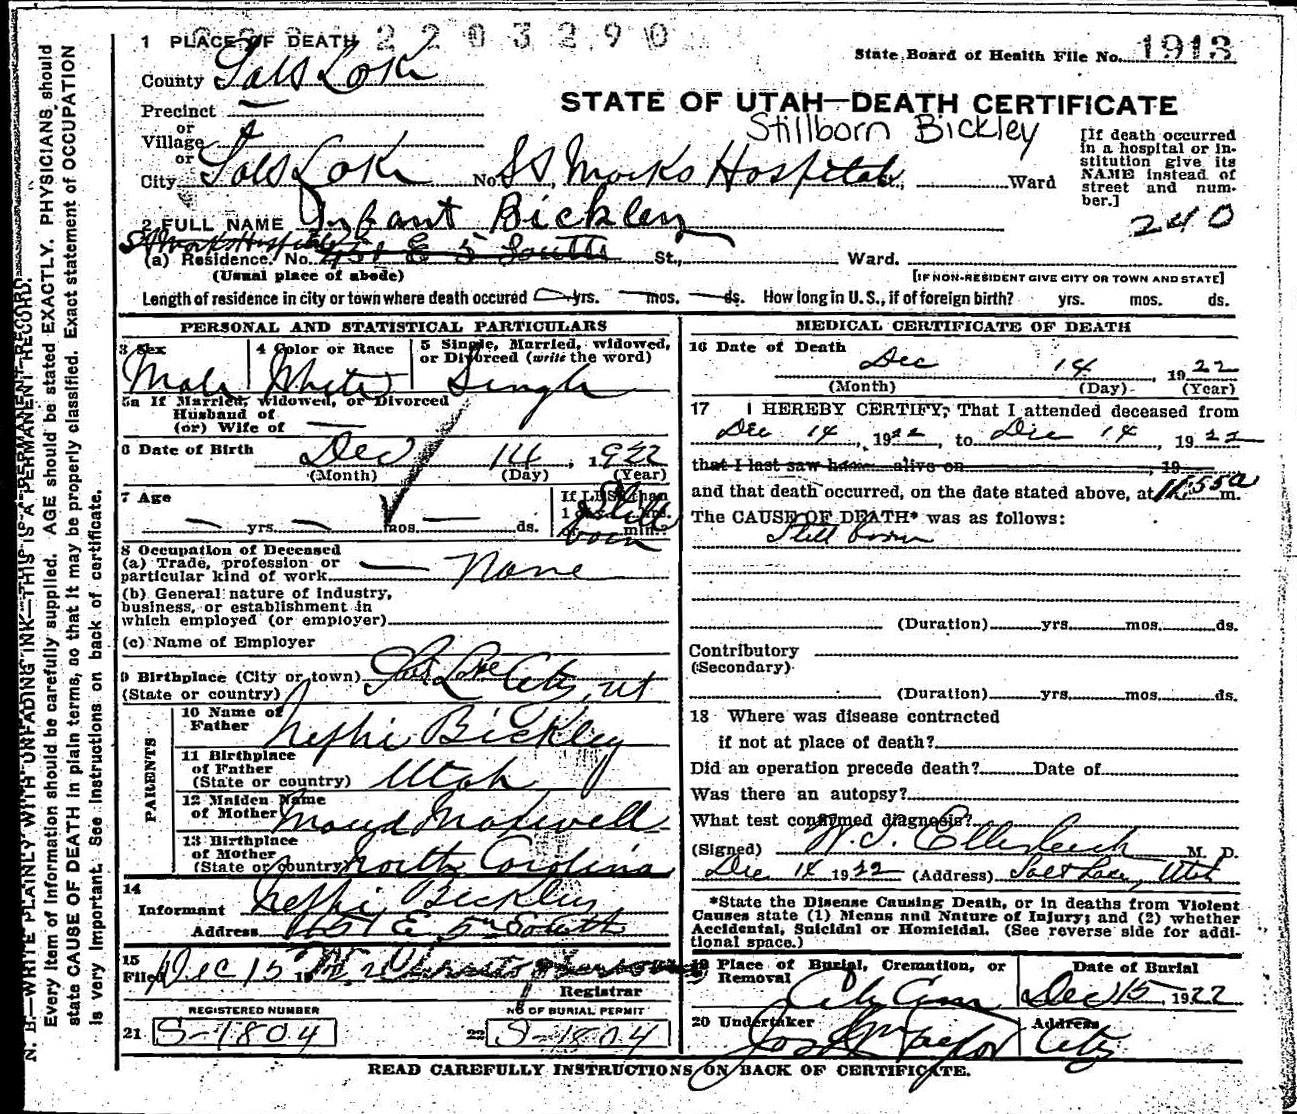 2203290
1 PLACE OF DEATH
State Board of Health File No. 1913
County Salt Lake
STATE OF UTAH—DEATH CERTIFICATE
Precinct —
Stillborn Bickley
or
Village
or
City Salt Lake No. St Marks Hospital, Ward
[If death occurred in a hospital or institution give its NAME instead of street and number.]
240
2 FULL NAME Infant Bickley
St Marks Hospital
(a) Residence. No. 451 E 5 South St., Ward.
(Usual place of abode)
[IF NON-RESIDENT GIVE CITY OR TOWN AND STATE]
Length of residence in city or town where death occured — yrs. — mos. — ds. How long in U.S., if of foreign birth? yrs. mos. ds.
PERSONAL AND STATISTICAL PARTICULARS
3 Sex Male
4 Color or Race White
5 Single, Married, widowed, or Divorced (write the word) Single
5a If Married, widowed, or Divorced
Husband of
(or) Wife of —
6 Date of Birth Dec 14, 1922
(Month) (Day) (Year)
7 Age
— yrs. — mos. — ds.
If LESS than
1
min.?
Still born
8 Occupation of Deceased
(a) Trade, profession or
particular kind of work — None
(b) General nature of industry,
business, or establishment in
which employed (or employer)
(c) Name of Employer
9 Birthplace (City or town) Salt Lake City, Ut
(State or country)
PARENTS
10 Name of Father Nephi Bickley
11 Birthplace of Father (State or country) Utah
12 Maiden Name of Mother Maud Maxwell
13 Birthplace of Mother (State or country) North Carolina
14
Informant Nephi Bickley
Address 451 E 5th South
15
Filed Dec 15
Registrar
REGISTERED NUMBER
21 S-1804
No OF BURIAL PERMIT
22 S-1804
MEDICAL CERTIFICATE OF DEATH
16 Date of Death
Dec 14, 1922
(Month) (Day) (Year)
17 I HEREBY CERTIFY, That I attended deceased from
Dec 14, 1922, to Dec 14, 1922
that I last saw h alive on , 19
and that death occurred, on the date stated above, at 11.55a m.
The CAUSE OF DEATH* was as follows:
Still born
(Duration) yrs. mos. ds.
Contributory
(Secondary)
(Duration) yrs. mos. ds.
18 Where was disease contracted
if not at place of death?
Did an operation precede death? Date of
Was there an autopsy?
What test confirmed diagnosis?
(Signed) M. D.
Dec 14 1922 (Address) Salt Lake, Utah
*State the Disease Causing Death, or in deaths from Violent
Causes state (1) Means and Nature of Injury; and (2) whether
Accidental, Suicidal or Homicidal. (See reverse side for addi-
tional space.)
19 Place of Burial, Cremation, or Removal
City Cem
Date of Burial
Dec 15, 1922
20 Undertaker
Jos Wm Taylor
Address
City
READ CAREFULLY INSTRUCTIONS ON BACK OF CERTIFICATE.
N. B.—WRITE PLAINLY WITH UNFADING INK—THIS IS A PERMANENT RECORD.
Every item of information should be carefully supplied. AGE should be stated EXACTLY. PHYSICIANS should
state CAUSE OF DEATH in plain terms, so that it may be properly classified. Exact statement of OCCUPATION
is very important. See instructions on back of certificate.